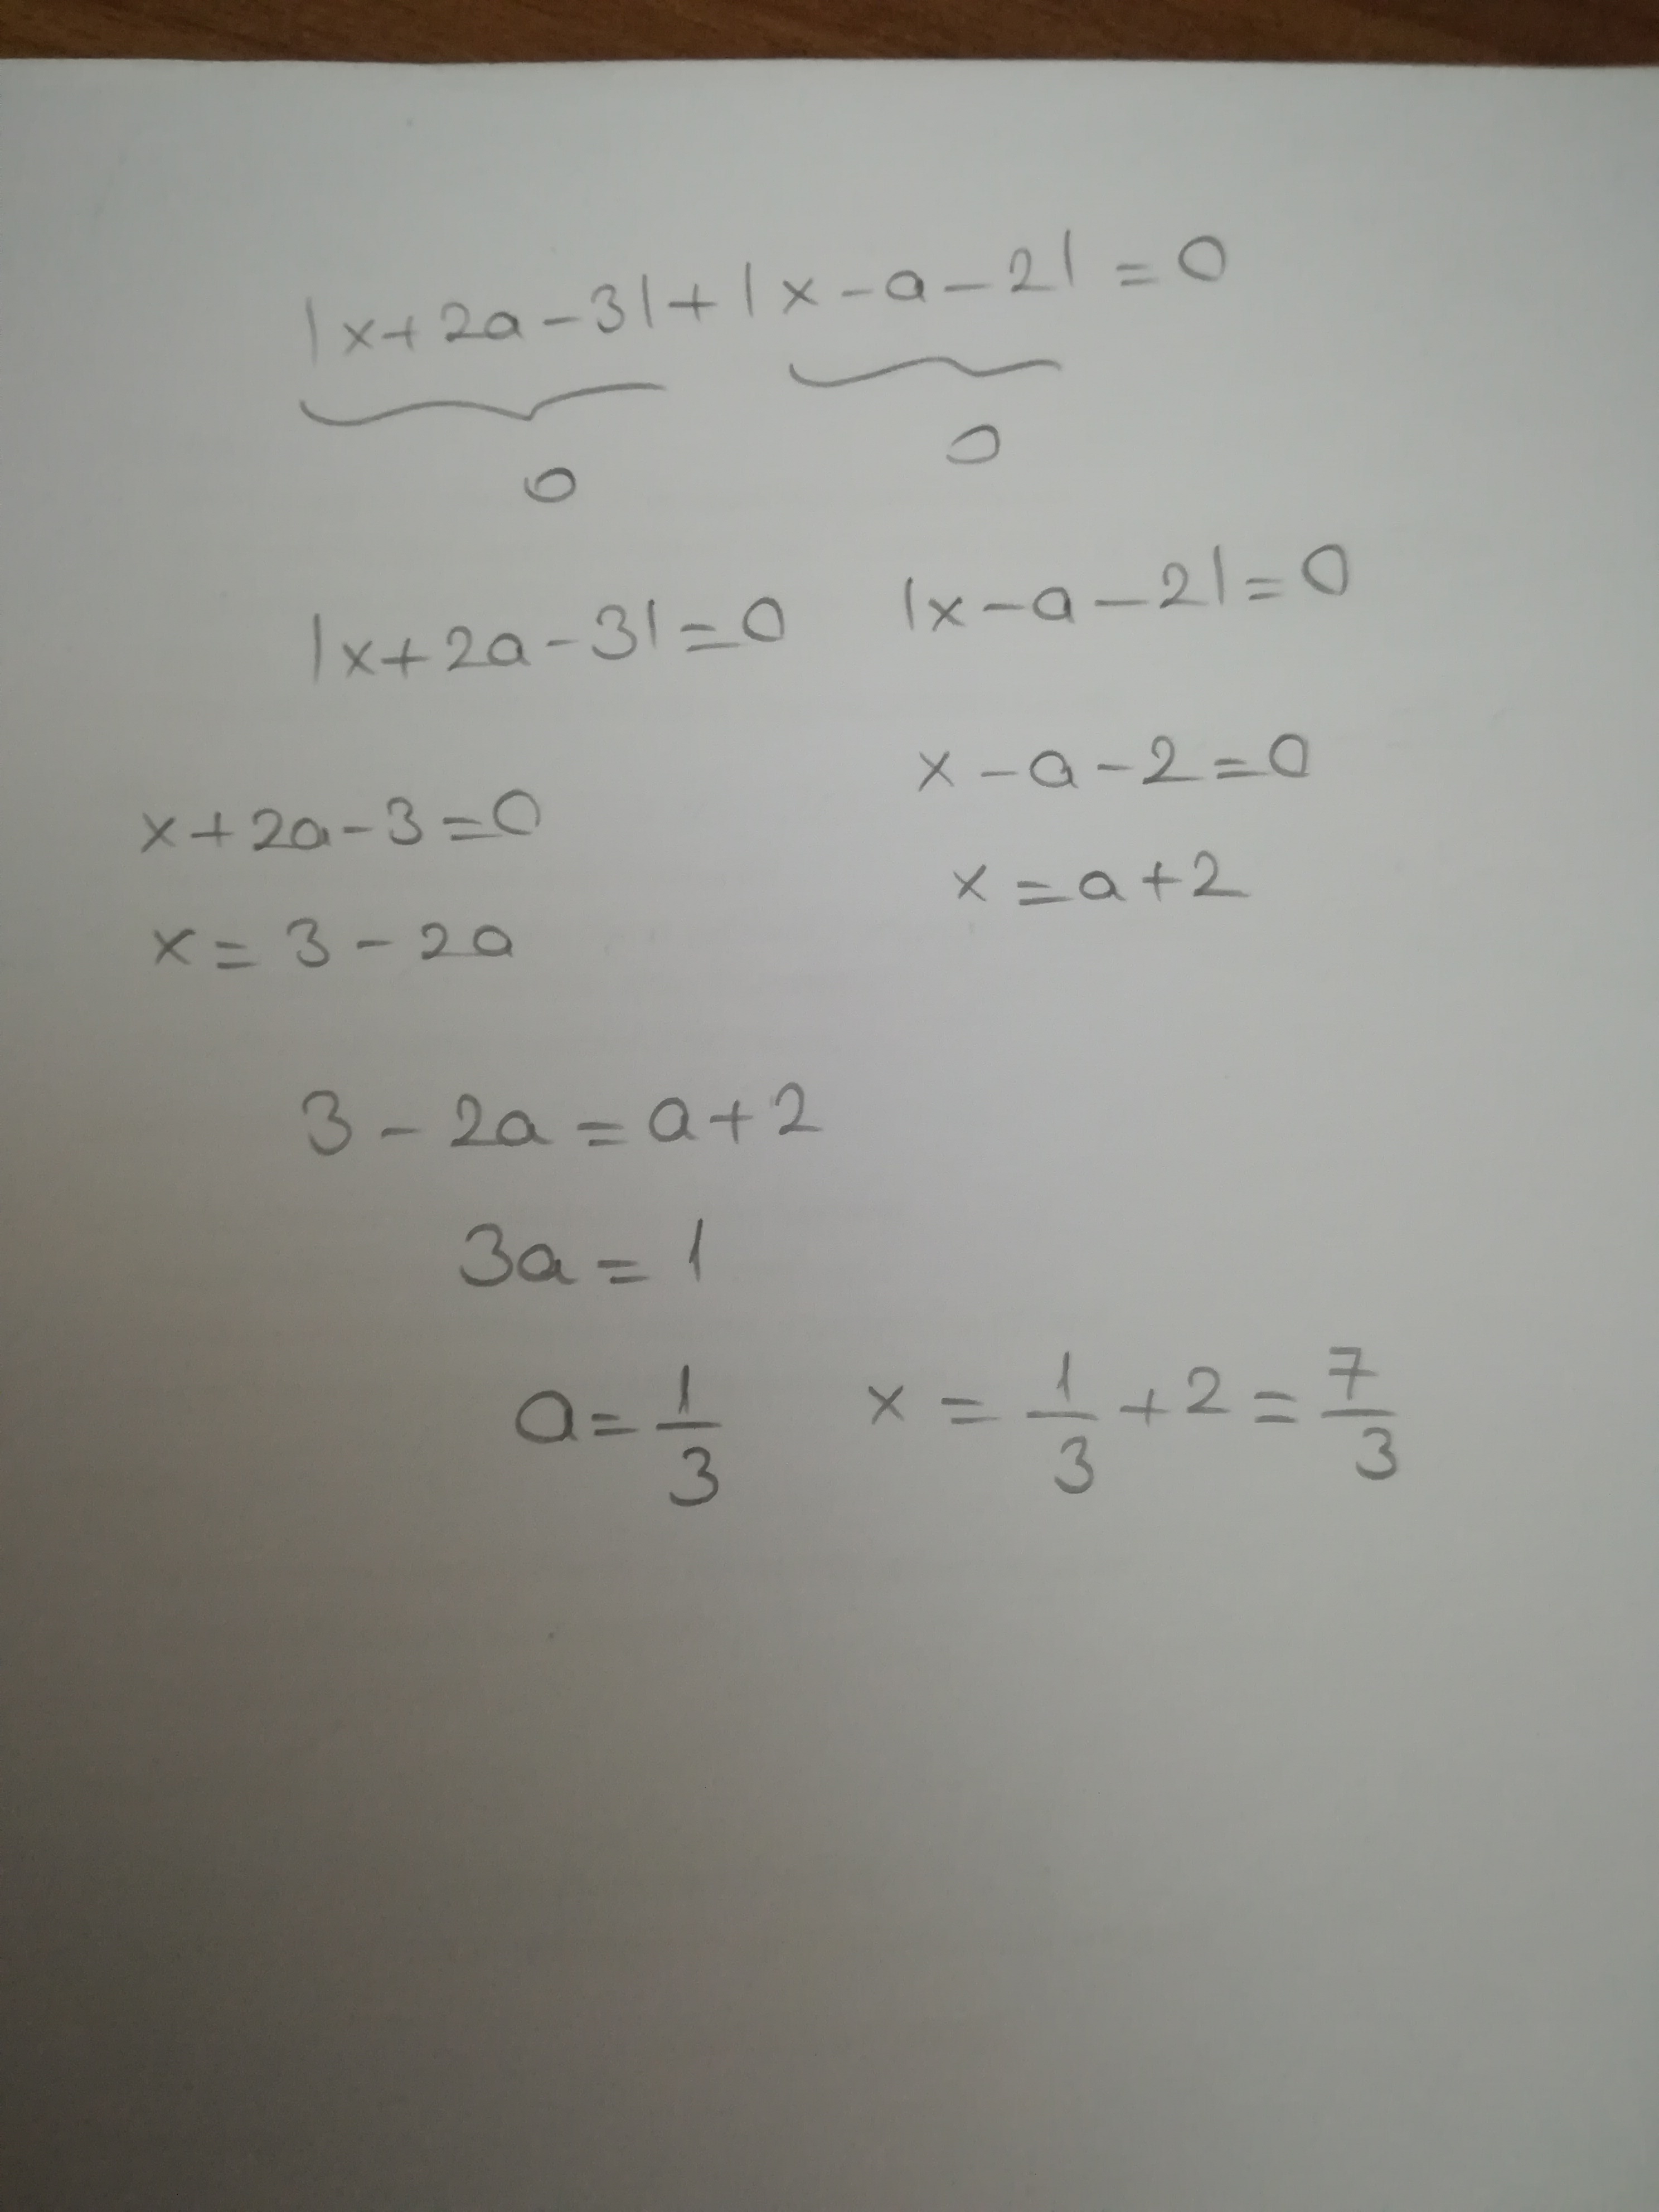 |x+2a-3|+|x-a-2|=0
0 0
|x+2a-3|=0 |x-a-2|=0
x+2a-3=0 x-a-2=0
x=3-2a x=a+2
3-2a=a+2
3a=1
a=1/3 x=1/3+2=7/3